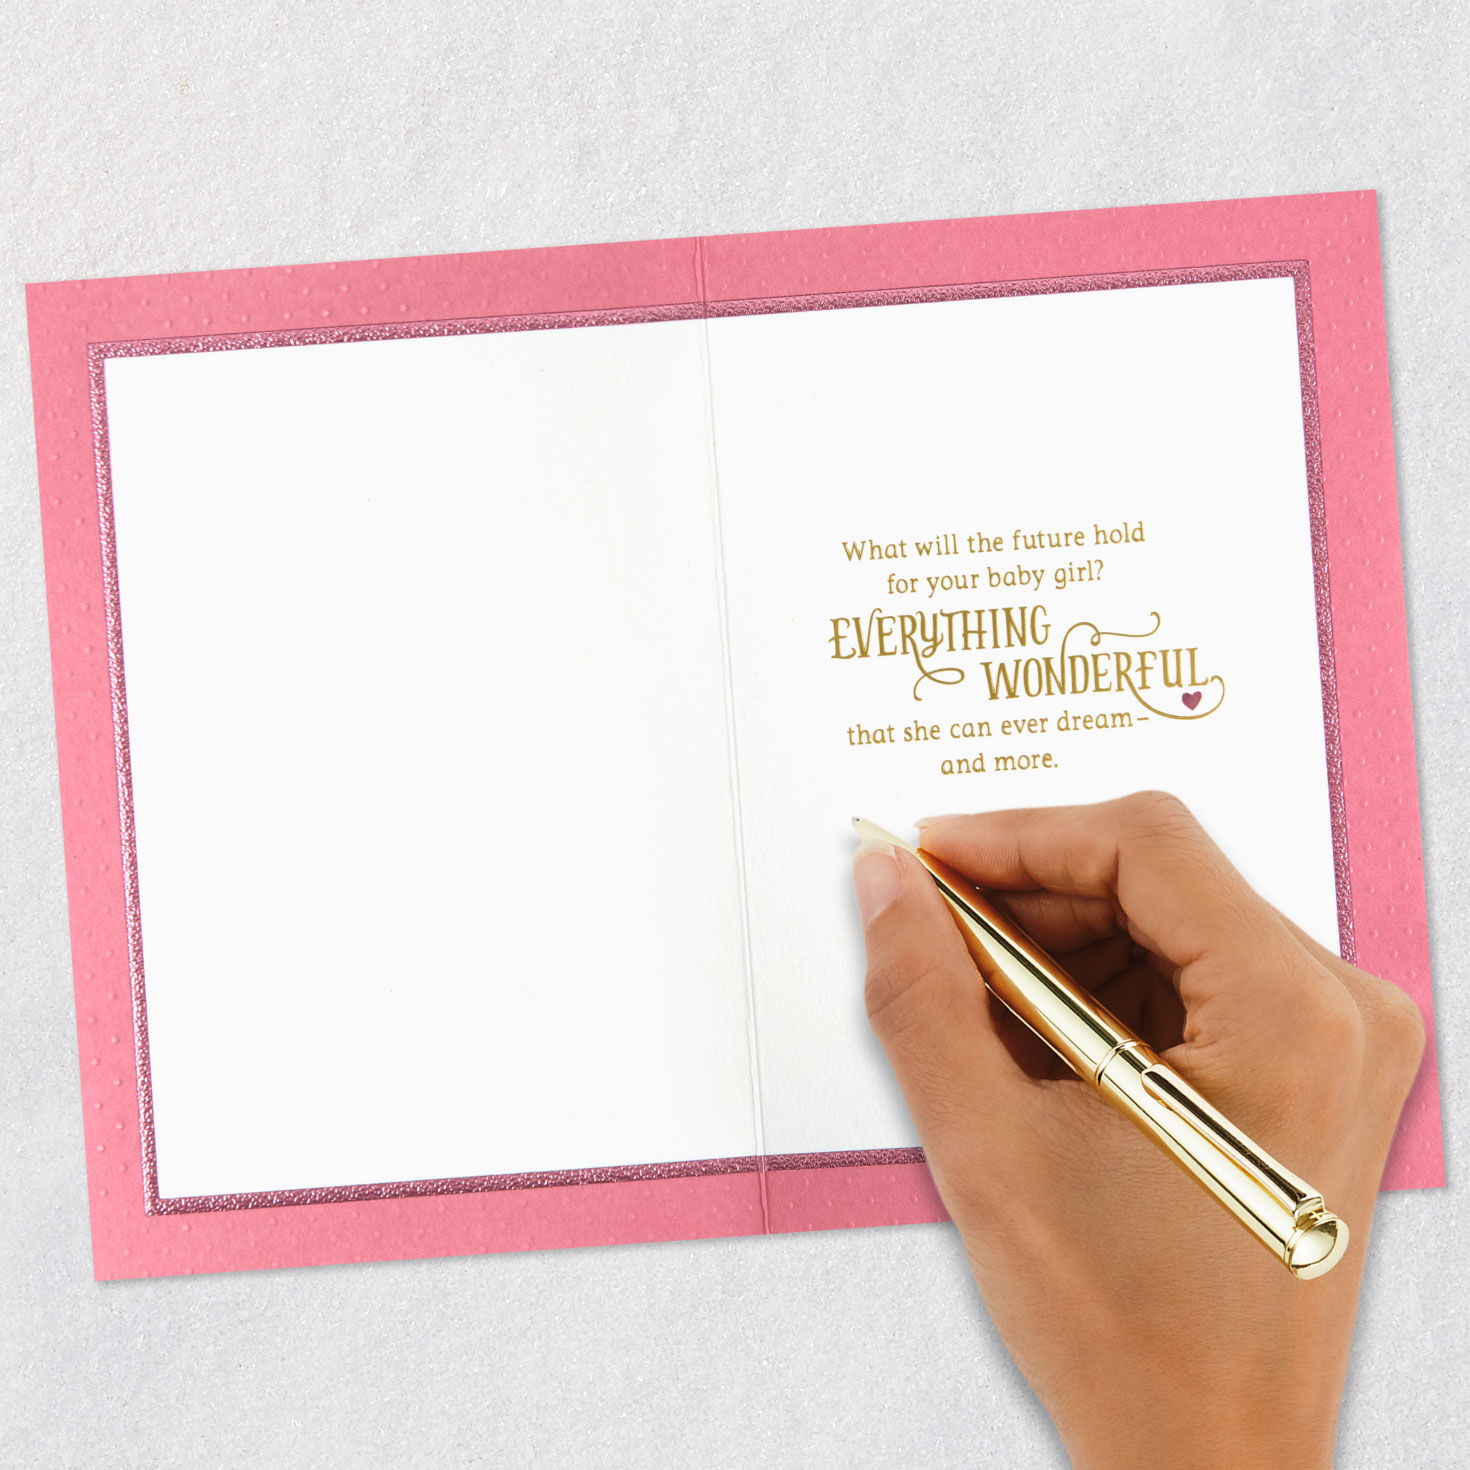 What will the future hold
for your baby girl?
EVERYTHING
WONDERFUL
that she can ever dream–
and more.